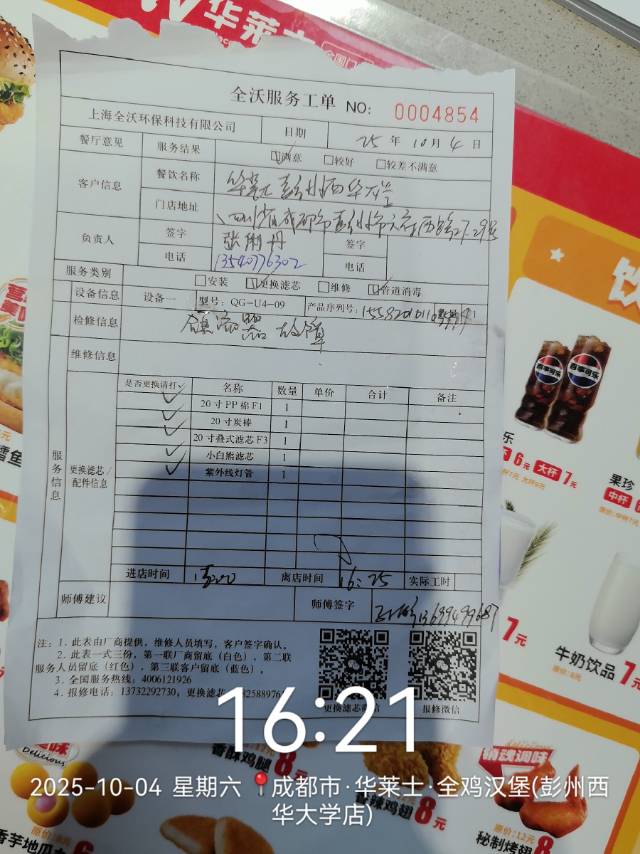 华莱士
全沃服务工单 NO: 0004854
上海全沃环保科技有限公司 日期 25 年 10 月 4 日
餐厅意见 服务结果 ☑满意 □较好 □较差不满意
客户信息 餐饮名称 华莱士彭州西华大学
门店地址 四川省成都市彭州市天府西路27.29号
负责人 签字 签字
电话 13540776302 电话
服务类别 □安装 ☑更换滤芯 □维修 ☑管道消毒
设备信息 设备一 型号: QG-U4-09 产品序列号:
检修信息 故障
维修信息
服务信息
更换滤芯/配件信息
是否更换请打✓ 名称 数量 单价 合计 备注
✓ 20寸PP棉F1 1
✓ 20寸炭棒 1
✓ 20寸叠式滤芯F3 1
✓ 小白熊滤芯 1
✓ 紫外线灯管 1
进店时间 离店时间 16:25 实际工时
师傅建议 师傅签字 13699499687
注: 1. 此表由厂商提供, 维修人员填写, 客户签字确认。
2. 此表一式三份, 第一联厂商留底(白色), 第二联
服务人员留底(红色), 第三联客户留底(蓝色)。
3. 全国服务热线: 4006121926
4. 报修电话: 13732292730, 更换滤芯
更换滤芯微信 报修微信
16:21
2025-10-04 星期六 成都市·华莱士·全鸡汉堡(彭州西
华大学店)
百事可乐
6元 大杯 7元
果珍
中杯
7元
牛奶饮品 7元
Delicious
香芋地瓜丸
8元
香辣鸡翅 8元
销魂调味
秘制烤翅 8元